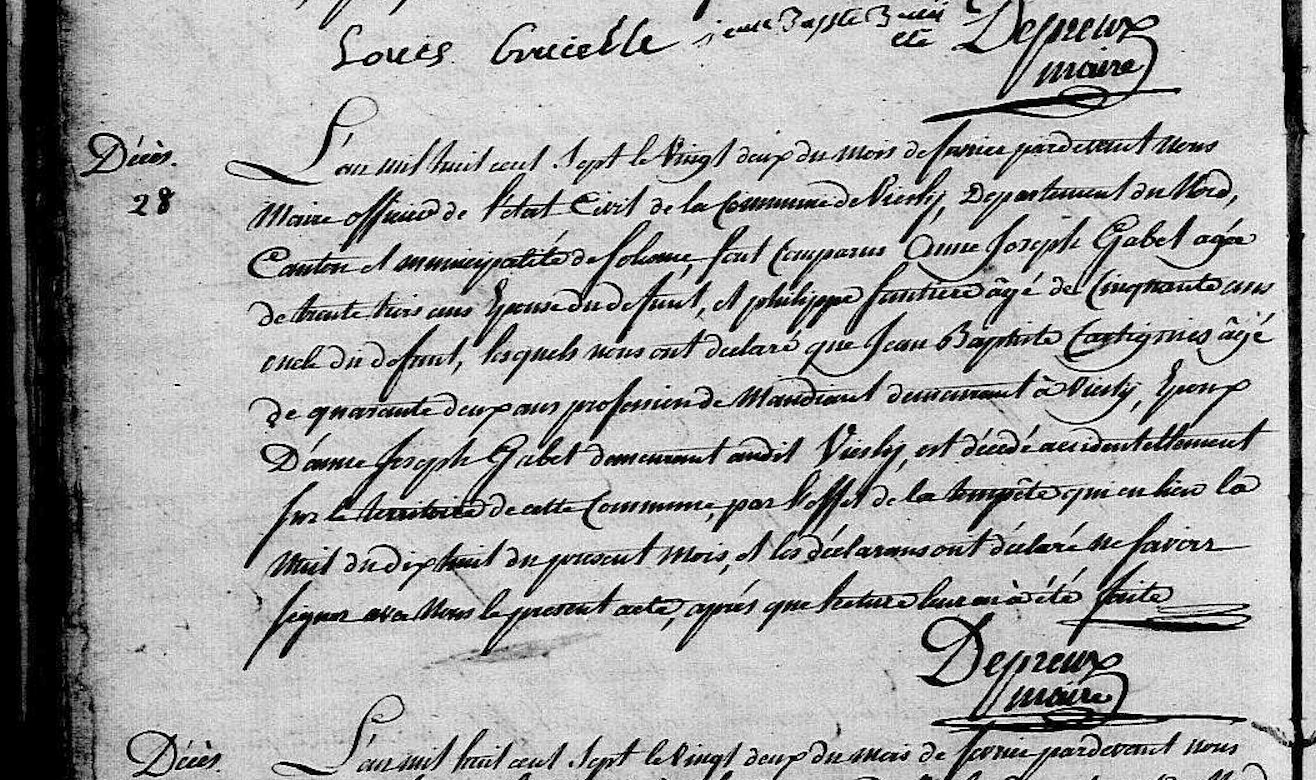 Louis Gricelle jean Baptte
Depreux
maire
Décès.
28
L'an mil huit cent sept le Vingt deux du mois de fevrier pardevant nous
Maire officier de l'état Civil de la Commune de Viesly, Departement du Nord,
Canton et municipalité de Solesme, sont Comparus Anne Joseph Gabet agée
de trente trois ans Epouse du defunt, et philippe âgé de Cinquante ans
oncle du defunt, lesquels nous ont declaré que Jean Baptiste Cartignies âgé
de quarante deux ans profession de Mandiant demeurant à Viesly, Epoux
D'anne Joseph Gabet demeurant audit Viesly, est décédé accidentellement
sur le territoire de cette Commune, par l'effet de la tempête qui eu lieu la
Nuit du dix huit du present mois, et les déclarans ont déclaré ne savoir
signer avec Nous le present acte, après que lecture leur en à été faite
Depreux
maire
Décès.
L'an mil huit cent sept le Vingt deux du mois de fevrier pardevant nous